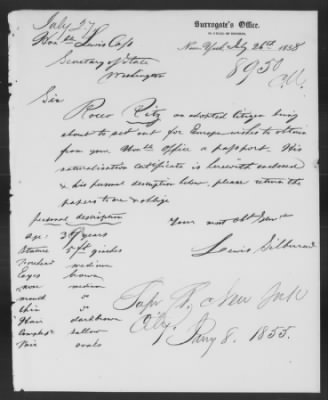 July 27
Surrogate's Office.
New York July 26th 1858
Honble Lewis Cass
Secretary of State
Washington
8957
Sir
Rocco Ritz an adopted Citizen being
about to set out for Europe wishes to obtain
from your Honble Office a passport. His
naturalization Certificate is herewith enclosed
& his personal description below, please return the
papers to me & oblige
Your most Obt Serv
Lewis
personal description
Age: 39 years
Stature 5 ft 9 inches
Forehead medium
Eyes brown
Nose medium
mouth do
Chin do
Hair dark brown
Complex sallow
Face oval
New York
City.
8. 1855.